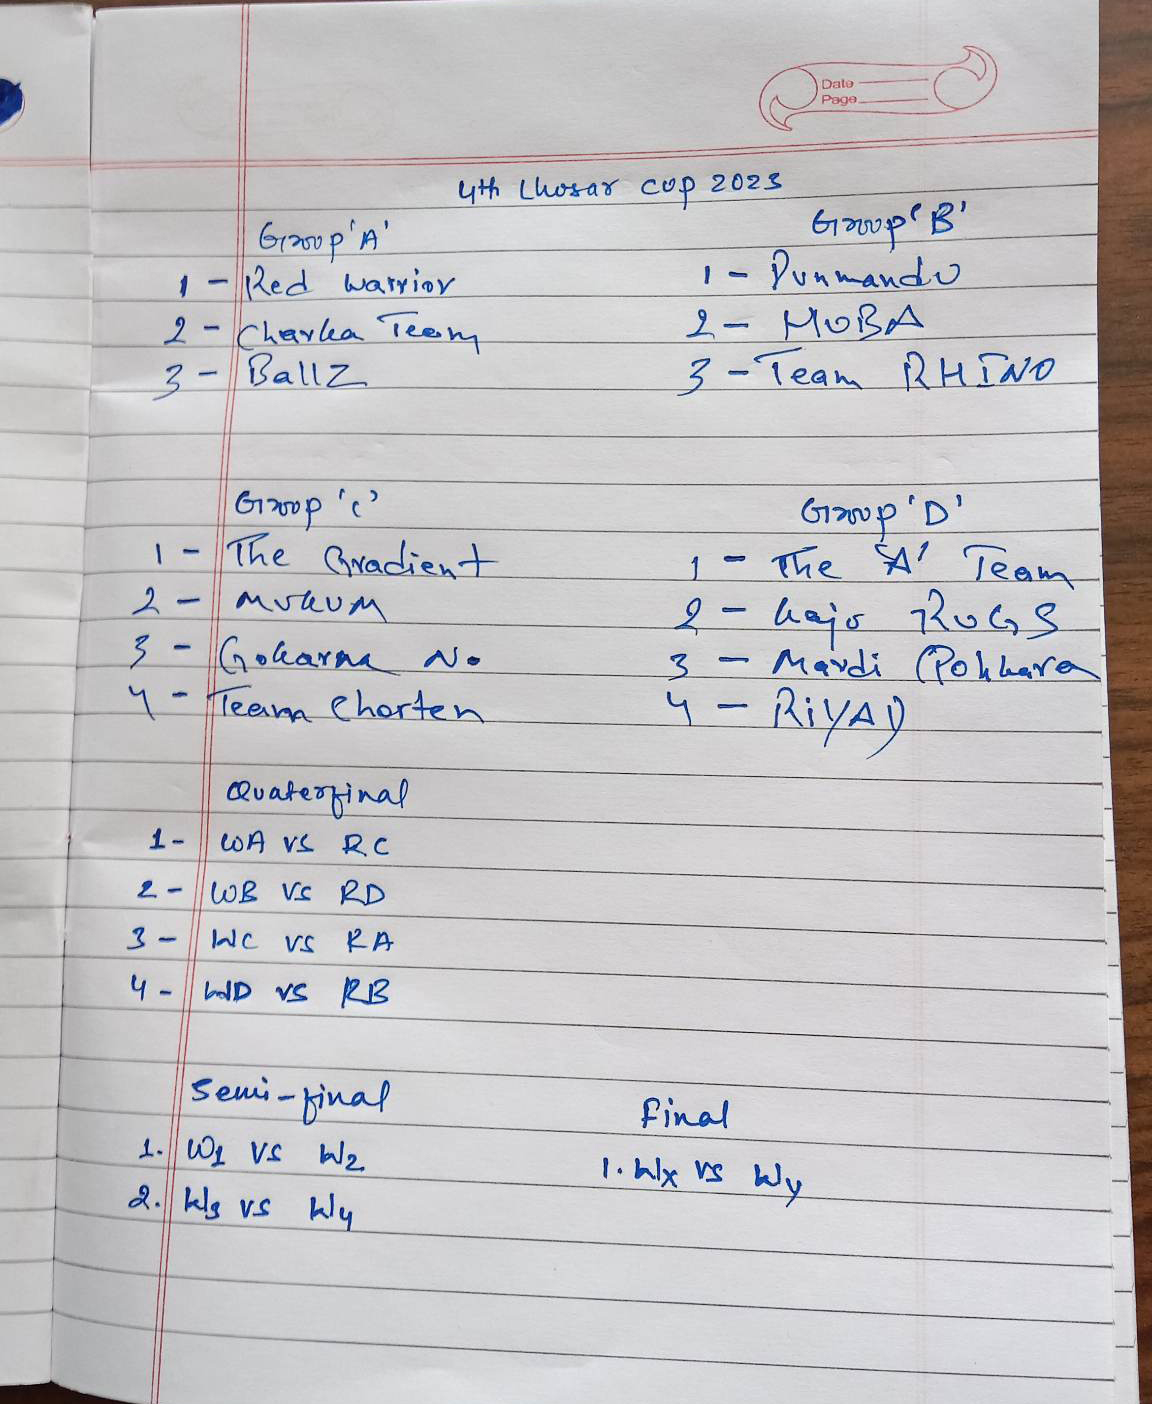 Date
Page
4th Lhosar cup 2023
Group 'A'
1 - Red warrior
2 - Charka Team
3 - BallZ
Group 'B'
1 - Punmando
2 - MOBA
3 - Team RHINO
Group 'C'
1 - The Gradient
2 - MUKUM
3 - Gokarna No
4 - Team Chorten
Group 'D'
1 - The 'A' Team
2 - kajo RUGS
3 - Mardi (Pokhara
4 - RiYAD
Quaterfinal
1- WA vs RC
2 - WB vs RD
3 - WC vs RA
4 - WD vs RB
Semi-final
1. W1 vs W2
2. W3 vs W4
Final
1. Wx vs Wy